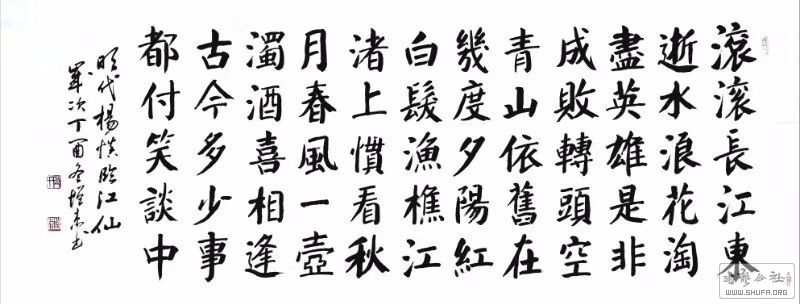 滚滚長江東
逝水浪花淘
盡英雄是非
成敗轉頭空
青山依舊在
幾度夕陽紅
白髮漁樵江
渚上慣看秋
月春風一壺
濁酒喜相逢
古今多少事
都付笑談中
明代楊慎臨江仙
歲次丁酉冬
WWW.SHUFA.ORG